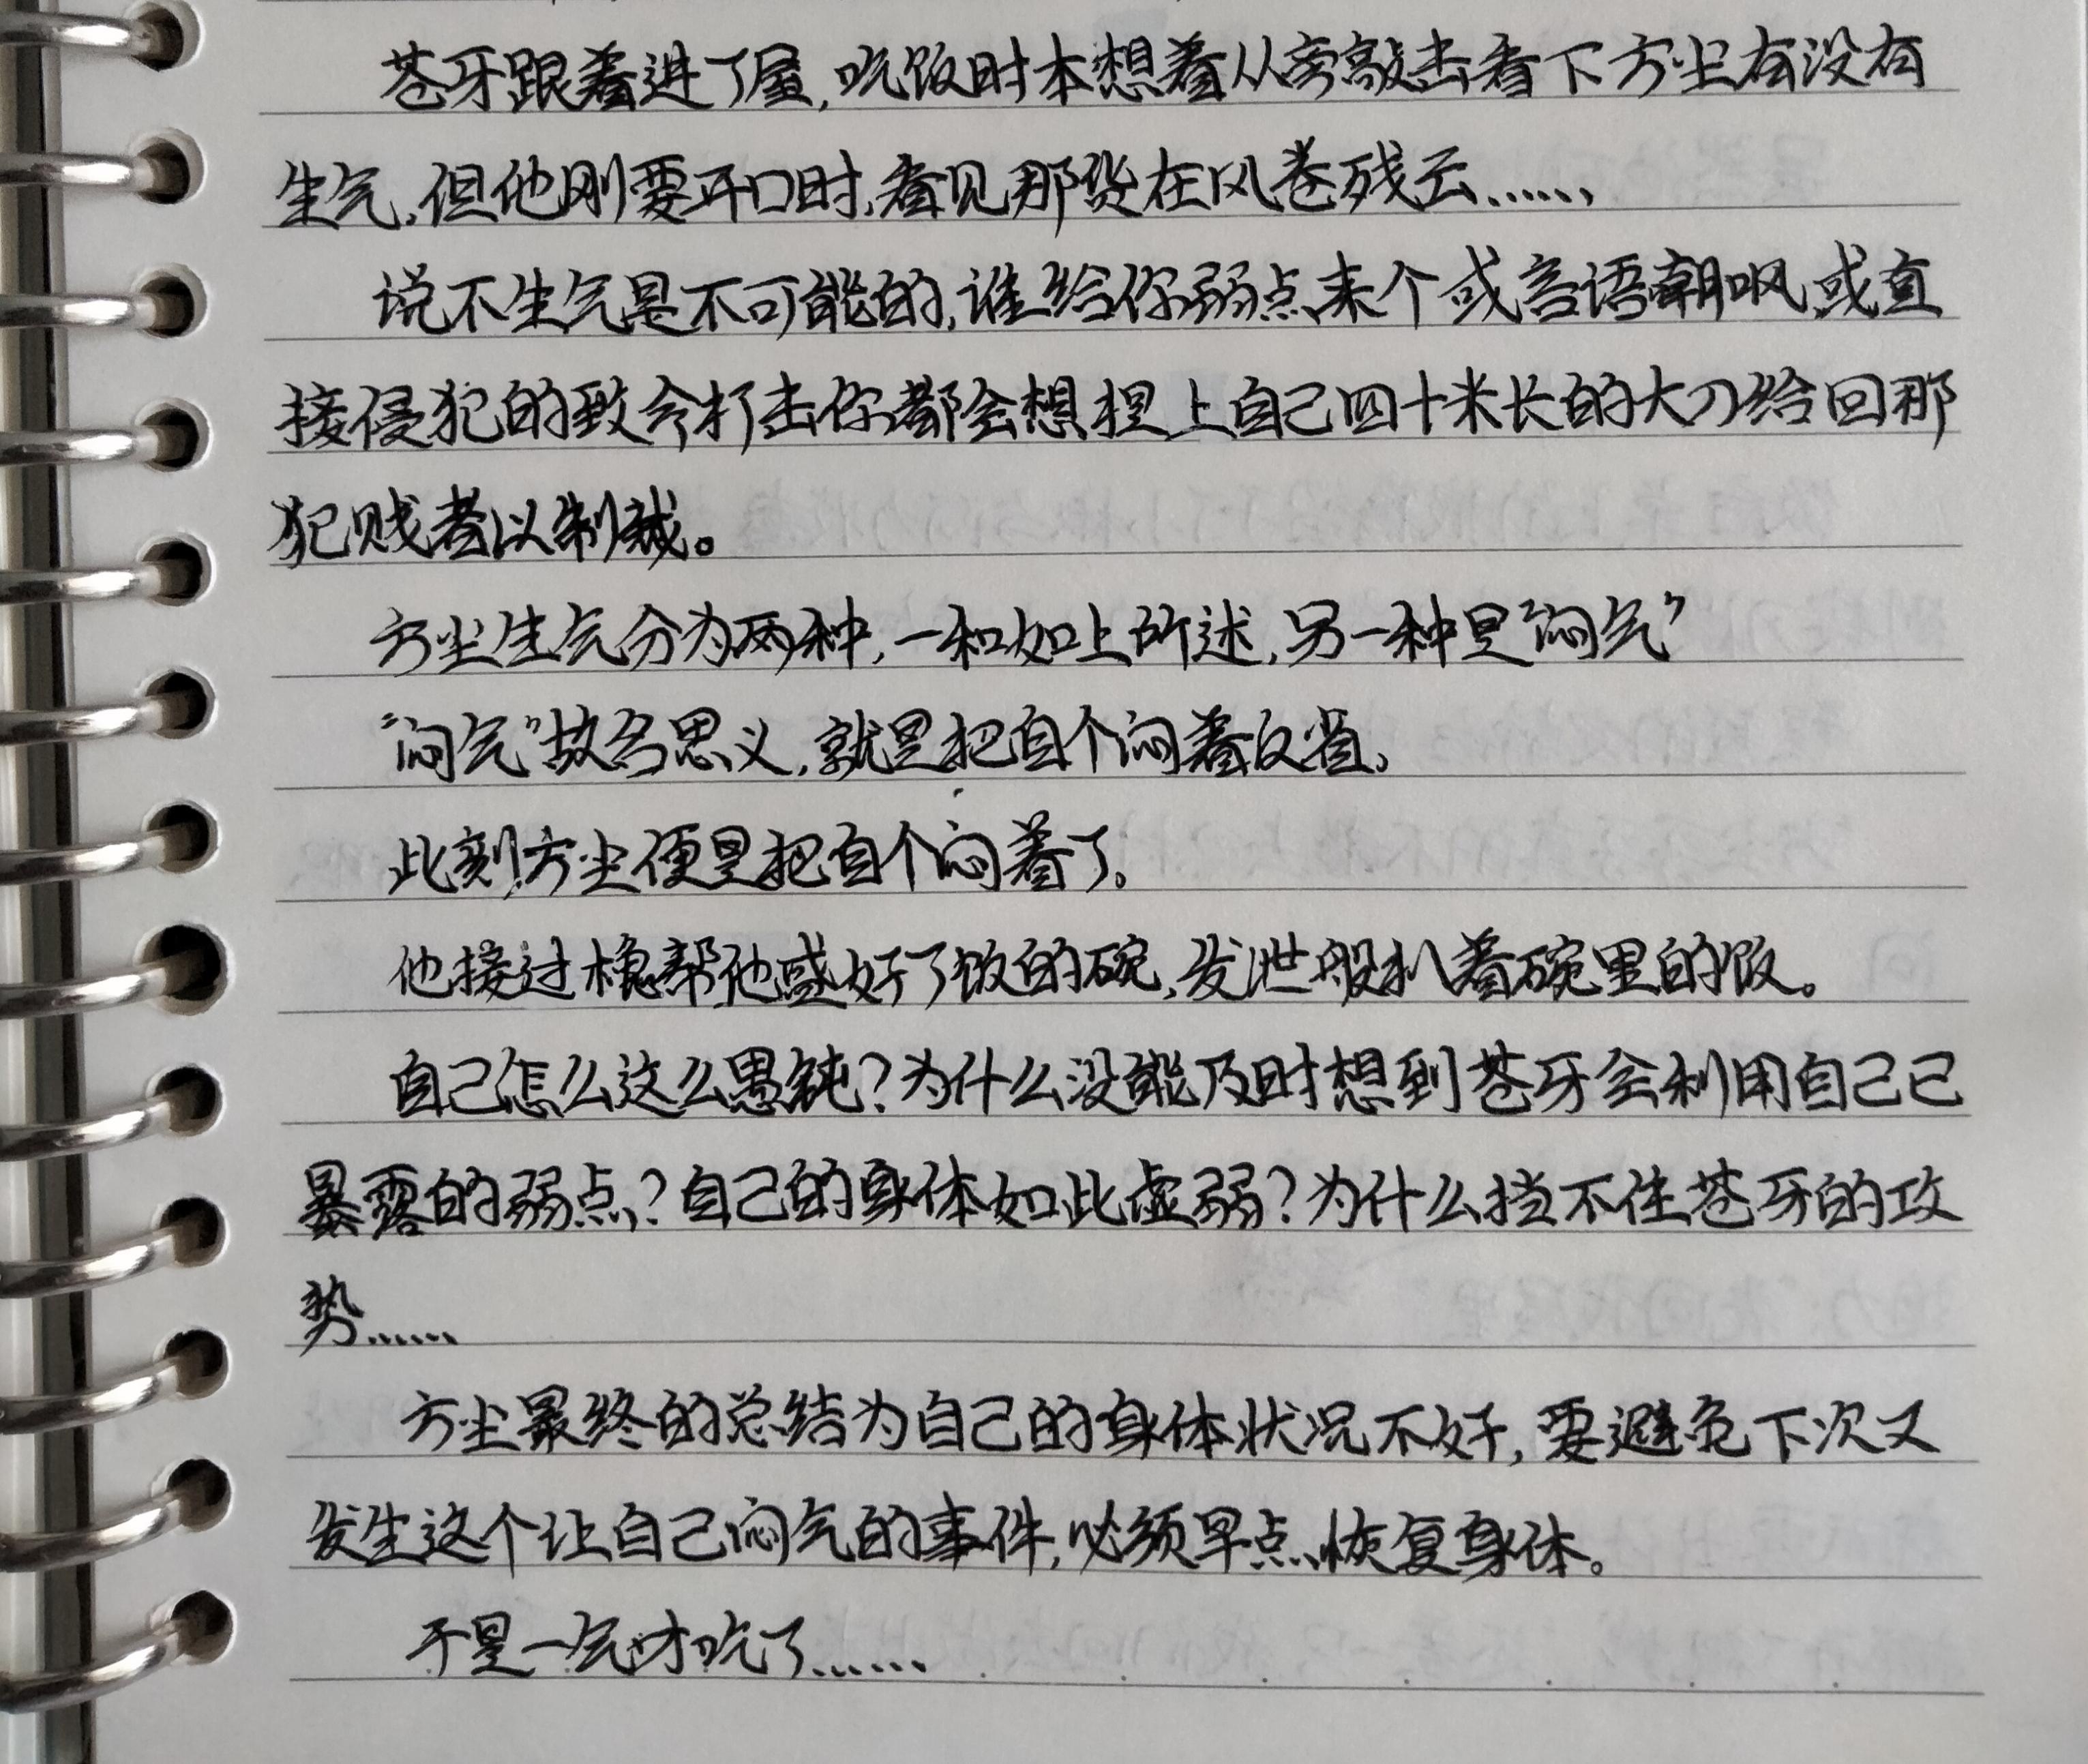 苍牙跟着进了屋,吃饭时本想着从旁敲击看下方尘有没有
生气,但他刚要开口时,看见那货在风卷残云……
说不生气是不可能的,谁给你弱点来个或言语嘲讽,或直
接侵犯的致命打击你都会想提上自己四十米长的大刀给回那
犯贱者以制裁。
方尘生气分为两种,一种如上所述,另一种是“闷气”
“闷气”故名思义,就是把自个闷着反省。
此刻方尘便是把自个闷着了。
他接过槐帮他盛好了饭的碗,发泄般扒着碗里的饭。
自己怎么这么愚钝?为什么没能及时想到苍牙会利用自己已
暴露的弱点?自己的身体如此虚弱?为什么挡不住苍牙的攻
势……
方尘最终的总结为自己的身体状况不好,要避免下次又
发生这个让自己闷气的事件,必须早点恢复身体。
于是一气才吃了……